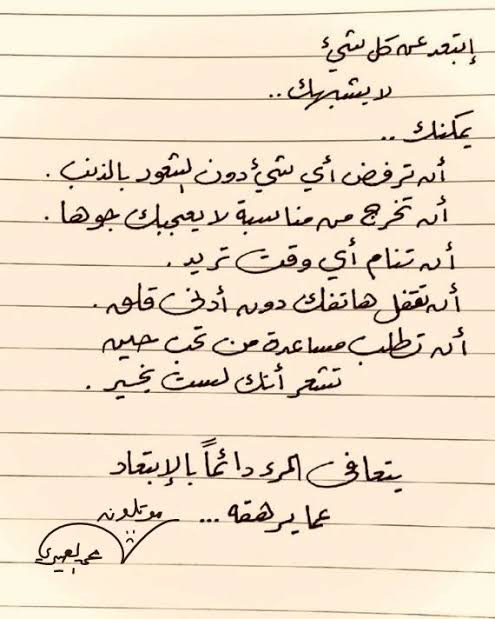 إبتعد عن كل شيء
لا يشبهك ..
يمكنك ..
أن ترفض أي شيء دون الشعور بالذنب .
أن تخرج من مناسبة لا يعجبك جوها .
أن تنام أي وقت تريد .
أن تقفل هاتفك دون أدنى قلق .
أن تطلب مساعدة من تحب حين
تشعر أنك لست بخير .
يتعافى المرء دائماً بالإبتعاد
عما يرهقه ... موتلون